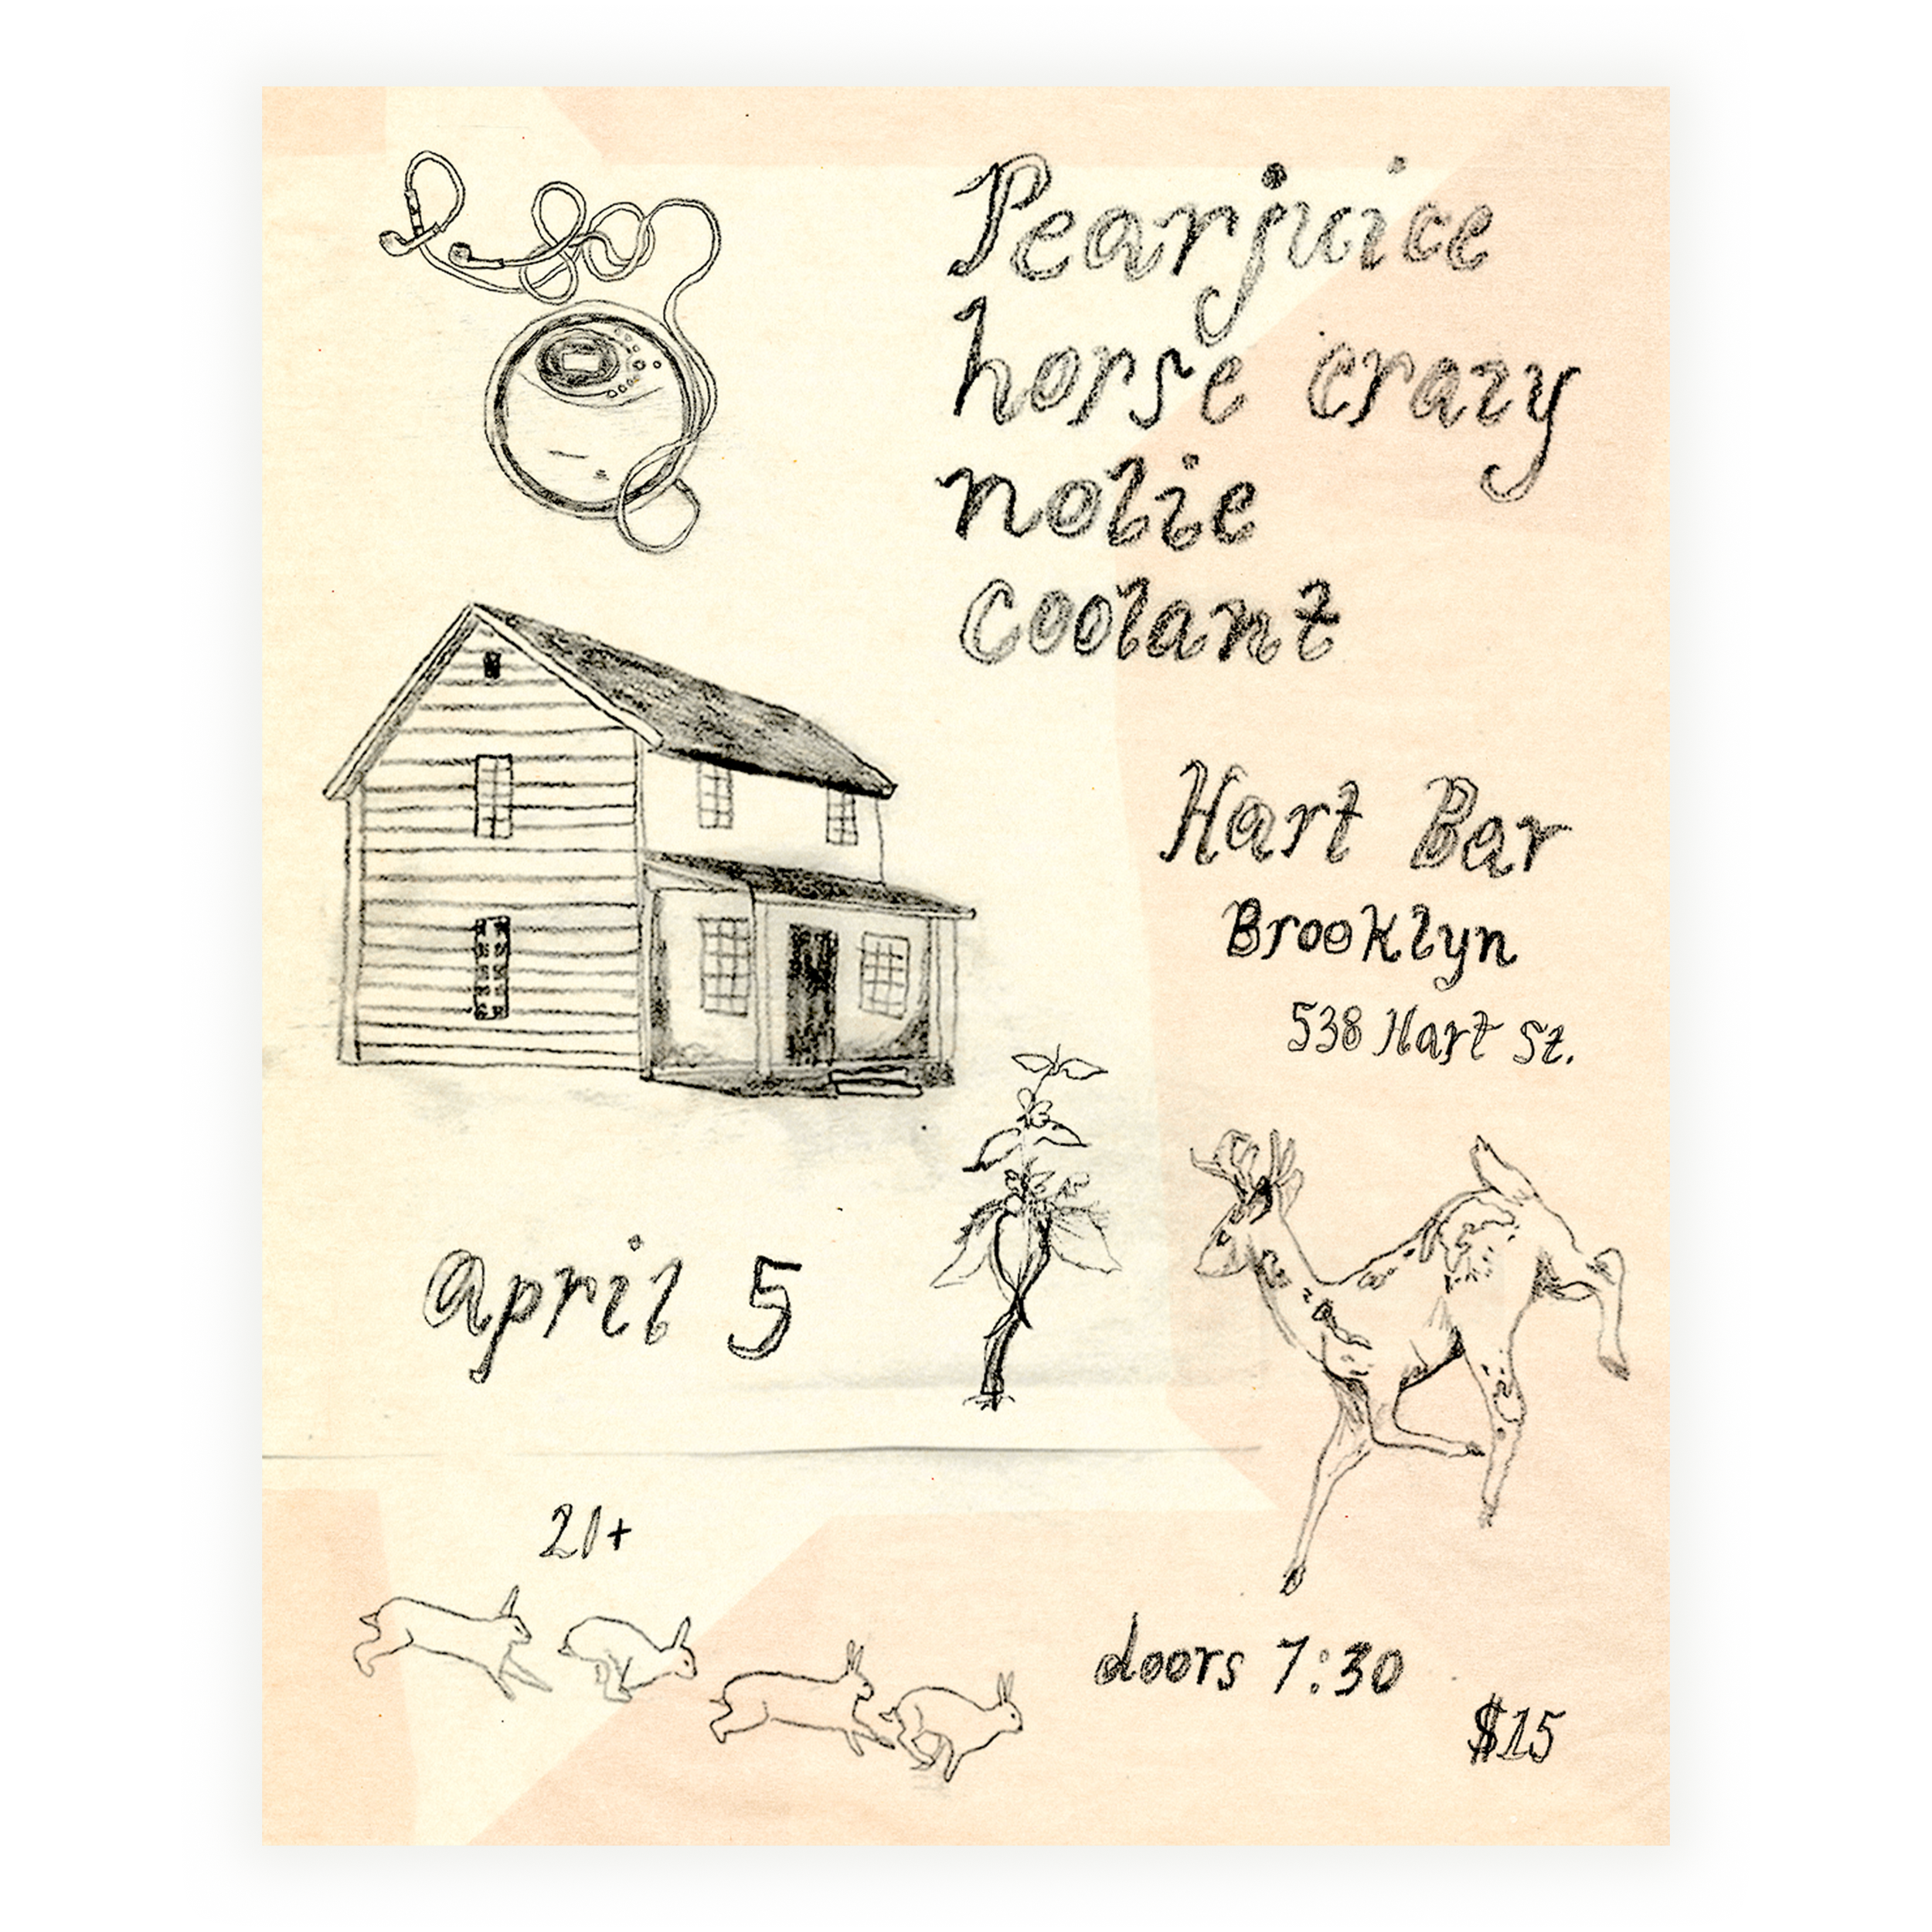 Pearjuice
horse crazy
nolie
coolant
Hart Bar
Brooklyn
538 Hart St.
april 5
21+
doors 7:30
$15